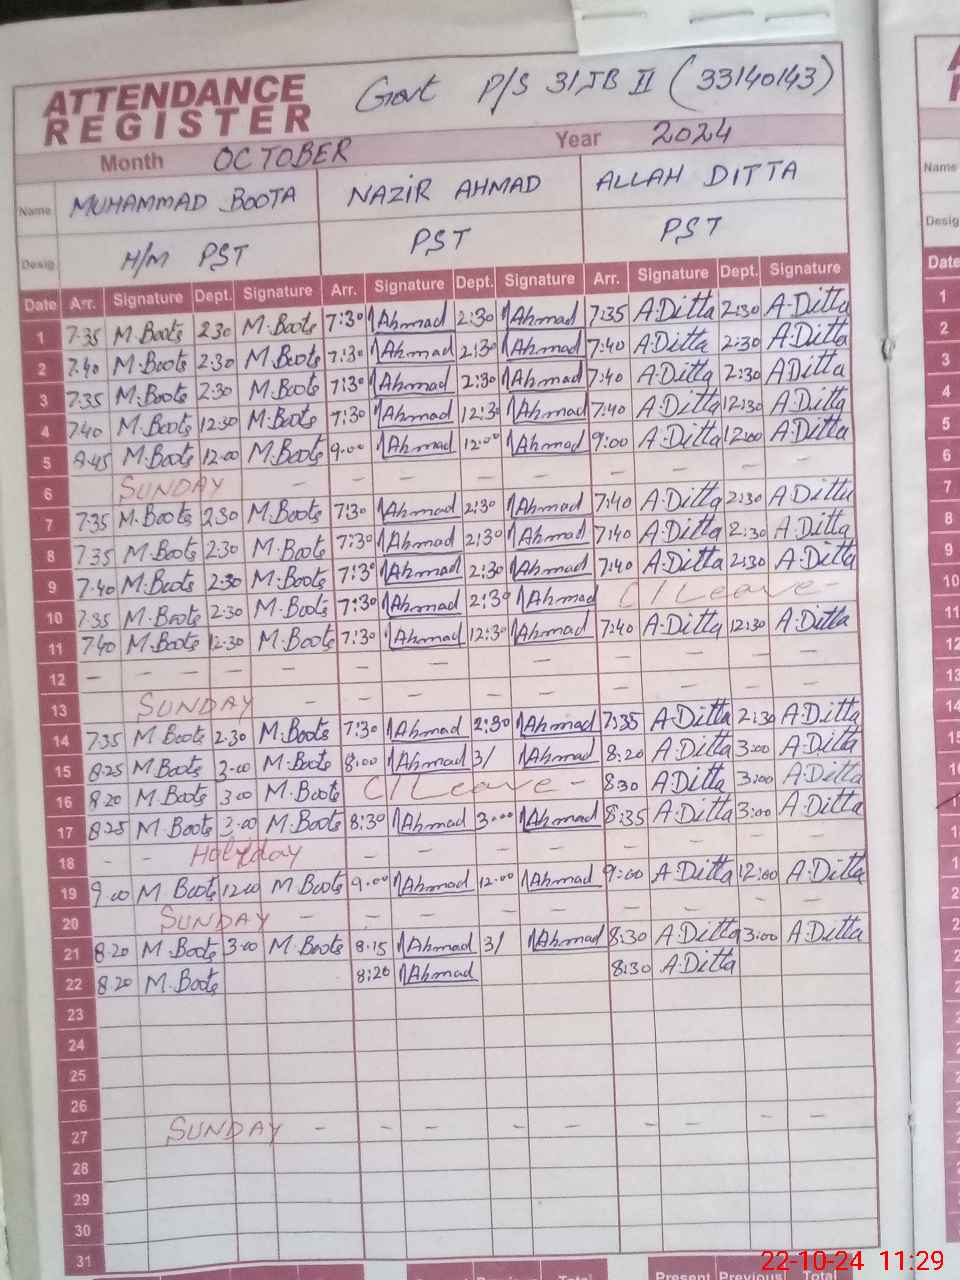 ATTENDANCE REGISTER Govt P/S 31JB II (33140143)
Month OCTOBER Year 2024
Name MUHAMMAD BOOTA NAZIR AHMAD ALLAH DITTA
Desig H/M PST PST PST
Date Arr. Signature Dept. Signature Arr. Signature Dept. Signature Arr. Signature Dept. Signature
1 7.35 M.Boota 2.30 M.Boota 7:30 Ahmad 2:30 Ahmad 7:35 A.Ditta 2:30 A.Ditta
2 7.40 M.Boota 2.30 M.Boota 7:30 Ahmad 2:30 Ahmad 7:40 A.Ditta 2:30 A.Ditta
3 7.35 M.Boota 2.30 M.Boota 7:30 Ahmad 2:30 Ahmad 7:40 A.Ditta 2:30 A.Ditta
4 7.40 M.Boota 12.30 M.Boota 7:30 Ahmad 12:30 Ahmad 7:40 A.Ditta 12:30 A.Ditta
5 8.45 M.Boota 12.00 M.Boota 9.00 Ahmad 12.00 Ahmad 9:00 A.Ditta 12:00 A.Ditta
6 SUNDAY - - - - - - - - -
7 7.35 M.Boota 2.30 M.Boota 7:30 Ahmad 2:30 Ahmad 7:40 A.Ditta 2:30 A.Ditta
8 7.35 M.Boota 2.30 M.Boota 7:30 Ahmad 2:30 Ahmad 7:40 A.Ditta 2:30 A.Ditta
9 7.40 M.Boota 2.30 M.Boota 7:30 Ahmad 2:30 Ahmad 7:40 A.Ditta 2:30 A.Ditta
10 7.35 M.Boota 2.30 M.Boota 7:30 Ahmad 2:30 Ahmad C/Leave -
11 7.40 M.Boota 12.30 M.Boota 7:30 Ahmad 12:30 Ahmad 7:40 A.Ditta 12:30 A.Ditta
12 - - - - - - - - - - - -
13 SUNDAY - - - - - - - - -
14 7.35 M.Boota 2.30 M.Boota 7:30 Ahmad 2:30 Ahmad 7:35 A.Ditta 2:30 A.Ditta
15 8.25 M.Boota 3.00 M.Boota 8:00 Ahmad 3/ Ahmad 8:20 A.Ditta 3:00 A.Ditta
16 8.20 M.Boota 3.00 M.Boota C/Leave - 8:30 A.Ditta 3:00 A.Ditta
17 8.25 M.Boota 3.00 M.Boota 8:30 Ahmad 3.00 Ahmad 8:35 A.Ditta 3:00 A.Ditta
18 - - Holyday - - - - - - - -
19 9.00 M.Boota 12.00 M.Boota 9.00 Ahmad 12.00 Ahmad 9:00 A.Ditta 12:00 A.Ditta
20 SUNDAY - - - - - - - - -
21 8.20 M.Boota 3.00 M.Boota 8.15 Ahmad 3/ Ahmad 8:30 A.Ditta 3:00 A.Ditta
22 8.20 M.Boota 8:20 Ahmad 8:30 A.Ditta
23
24
25
26
27 SUNDAY - - - - - - - - -
28
29
30
31
Present Previous Total
Name
Desig
Date
1
2
3
4
5
6
7
8
9
10
11
12
13
14
22-10-24 11:29